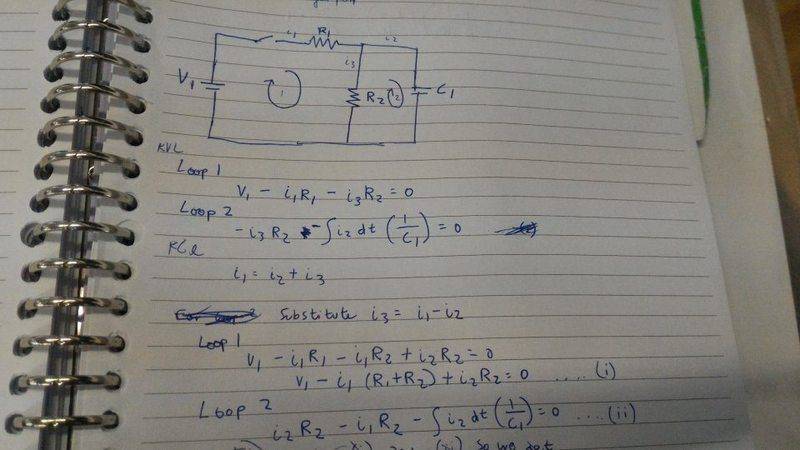 i₁ R₁ i₂
V₁ i₃ R₂ C₁
1 2
KVL
Loop 1
V₁ - i₁R₁ - i₃R₂ = 0
Loop 2
-i₃R₂ - ∫i₂ dt (1/C₁) = 0
KCL
i₁ = i₂ + i₃
Substitute i₃ = i₁ - i₂
Loop 1
V₁ - i₁R₁ - i₁R₂ + i₂R₂ = 0
V₁ - i₁ (R₁+R₂) + i₂R₂ = 0 .... (i)
Loop 2
i₂R₂ - i₁R₂ - ∫i₂ dt (1/C₁) = 0 .... (ii)
so we get